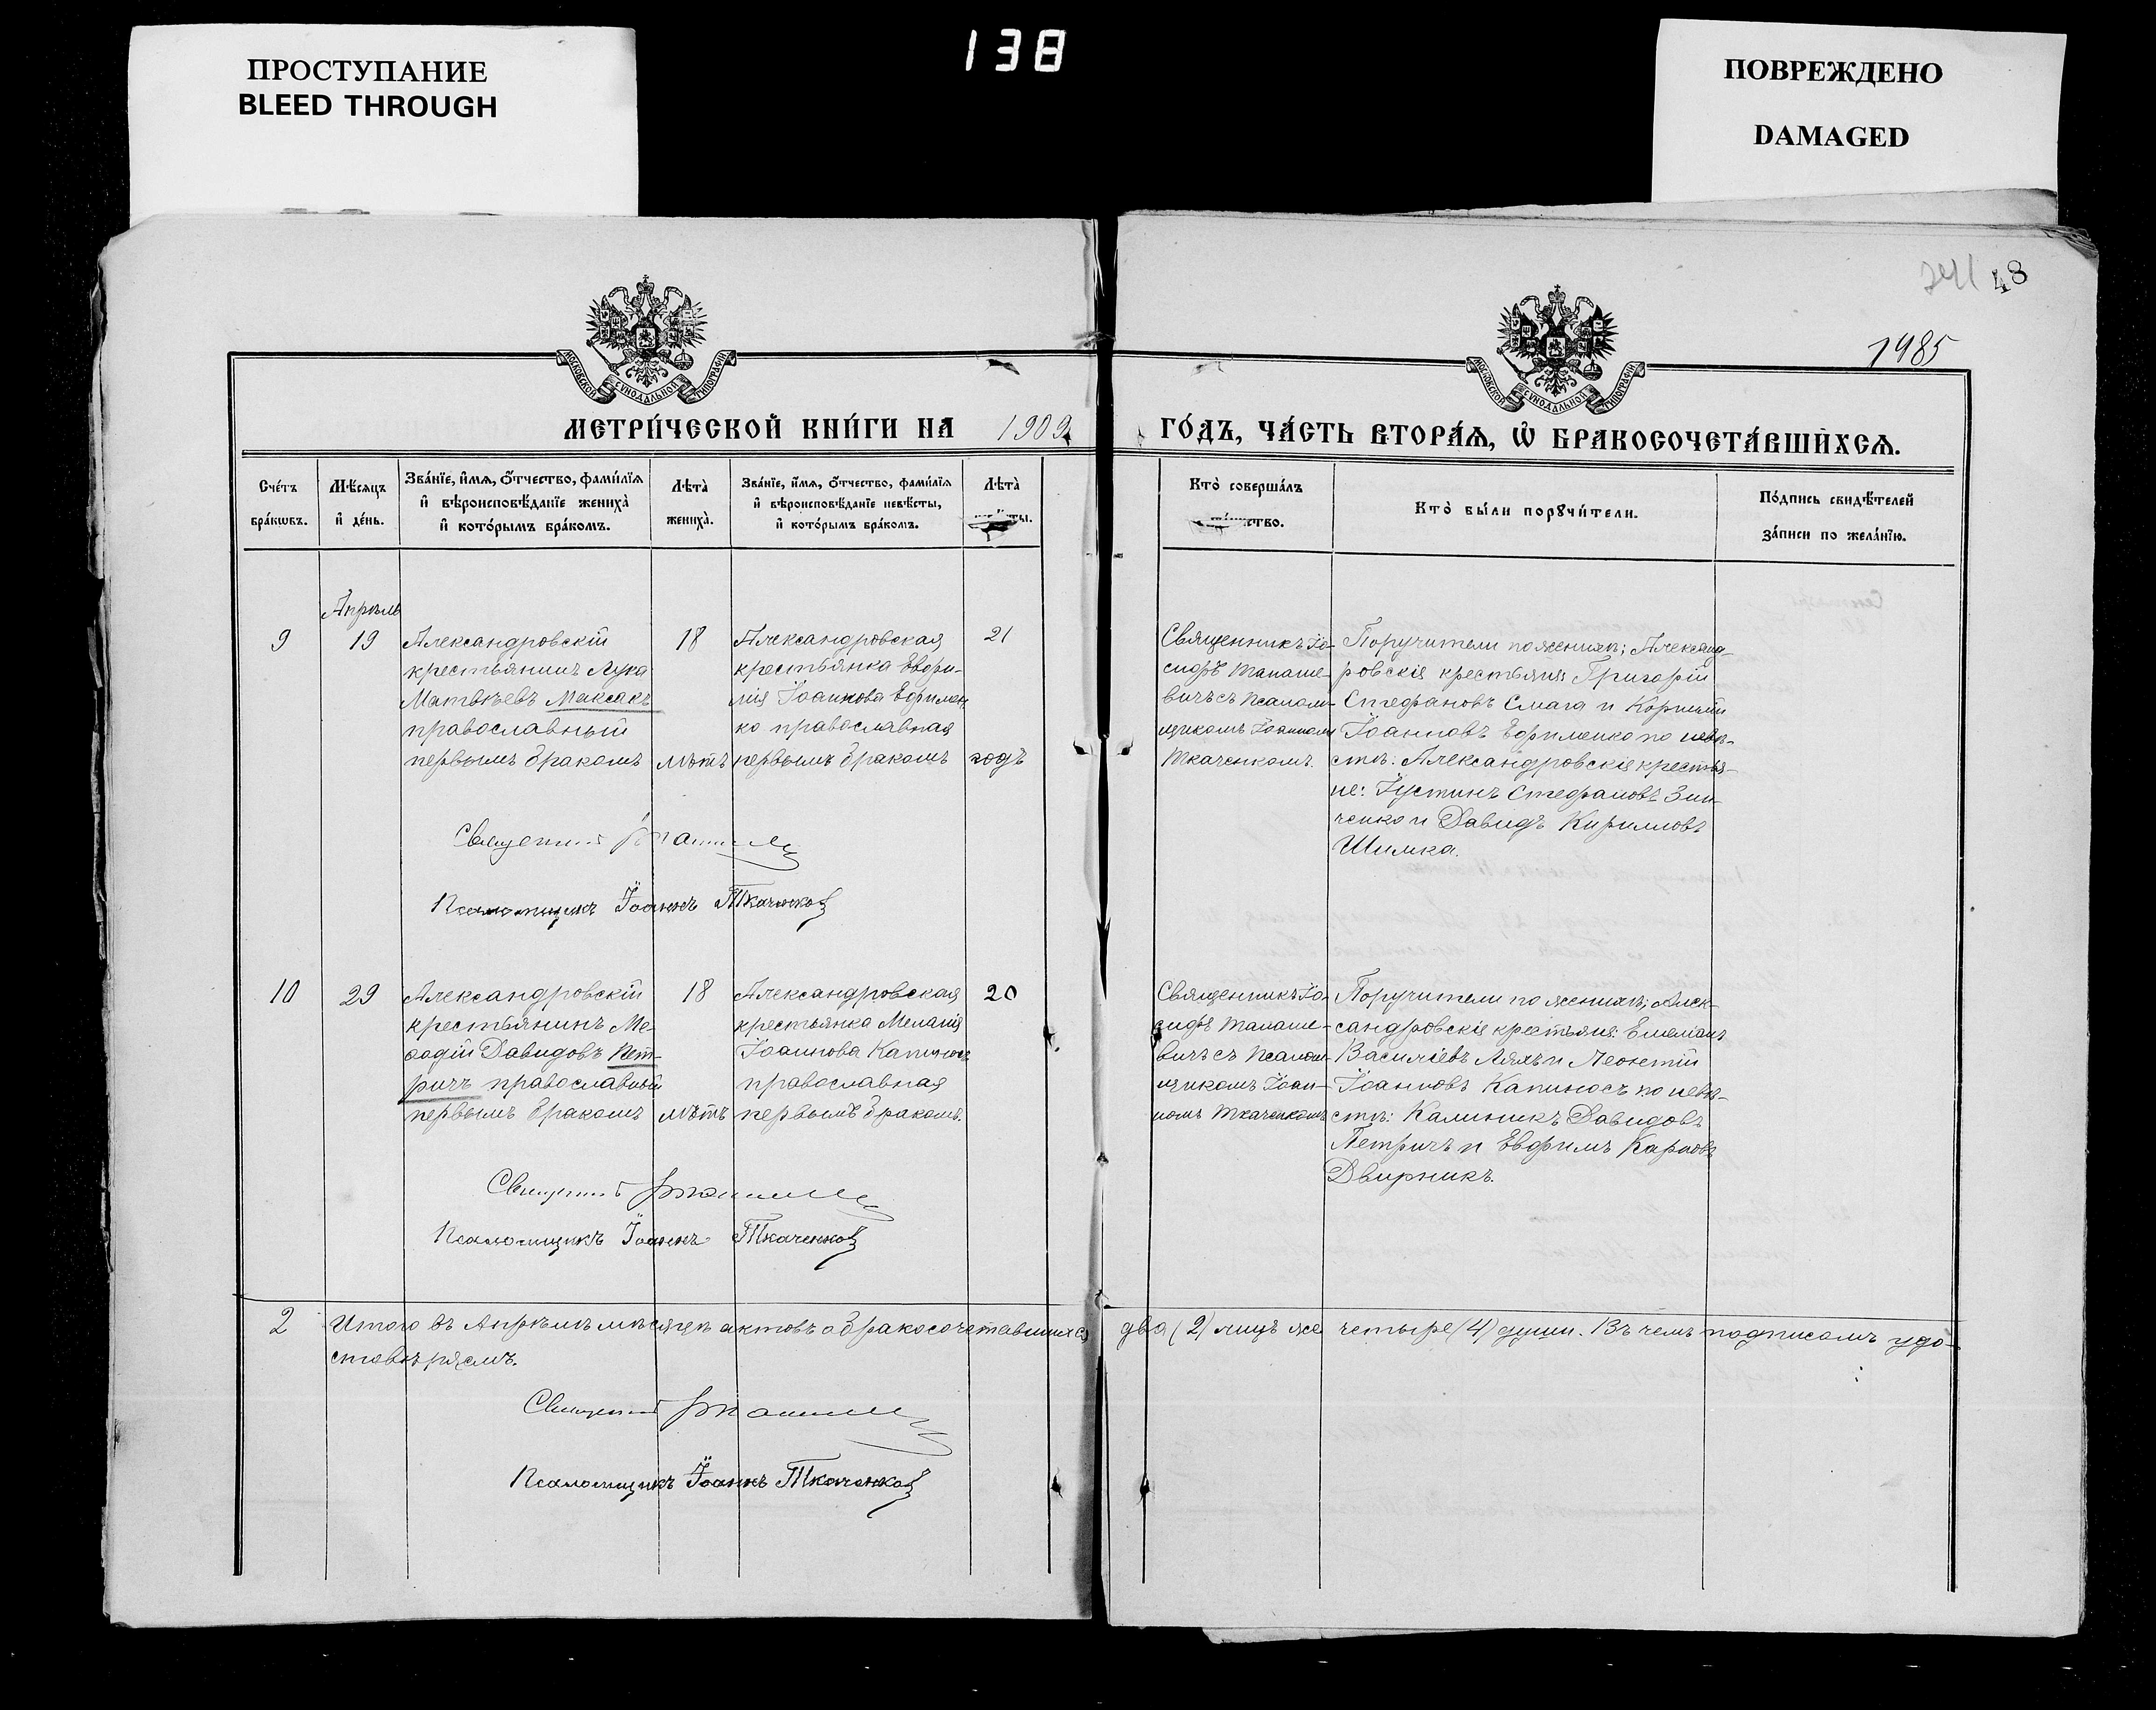 138
ПРОСТУПАНИЕ
BLEED THROUGH
ПОВРЕЖДЕНО
DAMAGED
48
1985
МОСКОВСКОЙ СѴНОДАЛЬНОЙ ТИПОГРАФІИ
МОСКОВСКОЙ СѴНОДАЛЬНОЙ ТИПОГРАФІИ
МЕТРИ́ЧЕСКОЙ КНИ́ГИ НА 1909
ГО́ДЪ, ЧА́СТЬ ВТОРА́Ѧ, Ѡ БРАКОСОЧЕТА́ВШИХСѦ.
Сче́тъ бра́кѡвъ.
Мѣ́сяцъ и де́нь.
Зва́нїе, и́мѧ, о́тчество, фами́лїѧ и вѣроисповѣ́данїе жениха̀ и кото́рымъ бра́комъ.
Лѣта̀ жениха̀.
Зва́нїе, и́мѧ, о́тчество, фами́лїѧ и вѣроисповѣ́данїе невѣ́сты, и кото́рымъ бра́комъ.
Лѣта̀
Кто̀ соверша́лъ
Кто̀ бы́ли порꙋчи́тели.
По́дпись свидѣ́телей за́писи по жела́нїю.
Апрѣль
9
19
Александровскій
крестьянинъ Лука
Матвѣевъ Максакъ
православный
первымъ бракомъ
18
лѣтъ
Александровская
крестьянка Евфи-
мія Іоаннова Ефимен
ко православная
первымъ бракомъ
21
годъ
Священникъ Іо-
сифъ
вичъ съ псалом-
щикомъ Іоанномъ
Ткаченкомъ.
Поручители по женихѣ; Александ-
ровскія крестьяня: Григорій
Стефановъ Смага и Корнилій
Іоанновъ Ефименко по невѣ-
стѣ: Александровскія крестья-
не: Іустинъ Стефановъ Зин-
ченко и Давидъ Кирилловъ
Шимка.
Священникъ
Псаломщикъ Іоаннъ Ткаченко
10
29
Александровскій
крестьянинъ Ме-
ѳодій Давидовъ Пет-
ричъ православный
первымъ бракомъ
18
лѣтъ
Александровская
крестьянка Меланія
Іоаннова Капинос
православная
первымъ бракомъ.
20
Священникъ Іо-
сифъ
вичъ съ псалом-
щикомъ Іоан-
номъ Ткаченкомъ
Поручители по женихѣ; Алек-
сандровскія крестьяня: Емеліанъ
Василіевъ Ляхъ и Леонтій
Іоанновъ Капиносъ по невѣ-
стѣ: Калиникъ Давидовъ
Петричъ и Евфимъ Карповъ
Двирникъ.
Священникъ
Псаломщикъ Іоаннъ Ткаченко
2
Итого въ Апрѣлѣ мѣсяцѣ актовъ о бракосочетавшихся два (2) лицъ же четыре (4) души. Въ чемъ подписомъ удо-
стовѣряемъ.
Священникъ
Псаломщикъ Іоаннъ Ткаченко